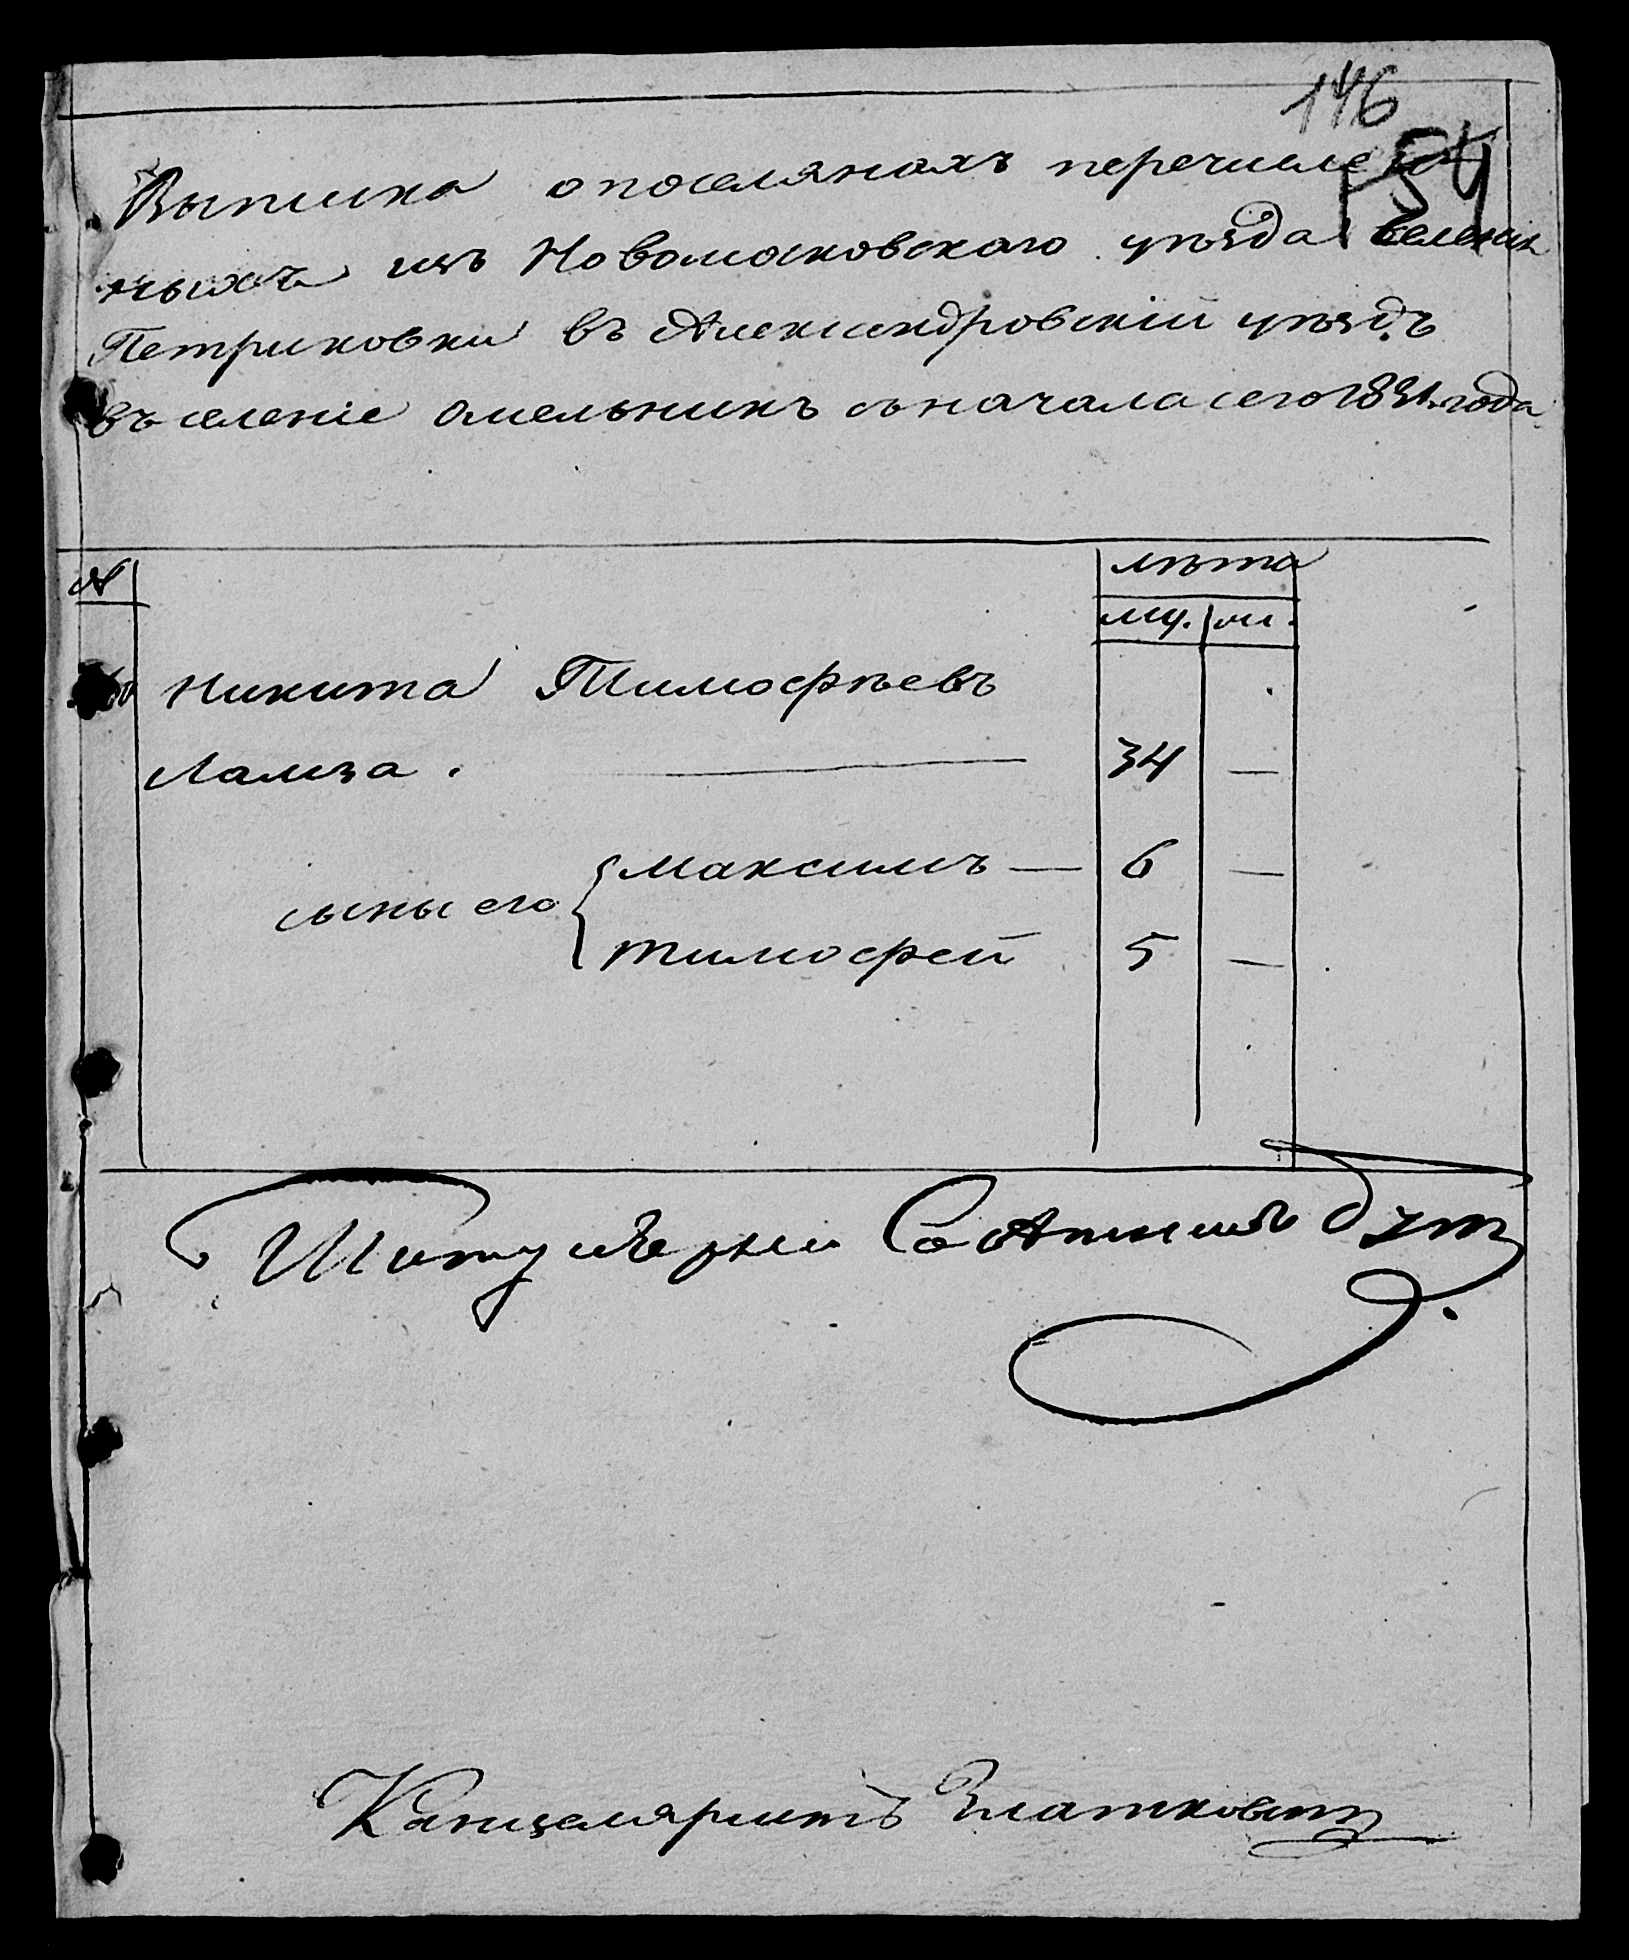 146
54
Выписка о поселянахъ перечислен
ныхъ изъ Новомосковскаго уѣзда селенія
Петриковки въ Александровскій уѣздъ
въ селеніе Омельникъ съ начала сего 1831 года
№
лѣта
му. | ж.
Никита Тимофѣевъ
Ламза. 34 —
Максимъ — 6 —
сыны его
Тимофей 5 —
Титулярный Совѣтникъ
Канцеляристъ Златковскій